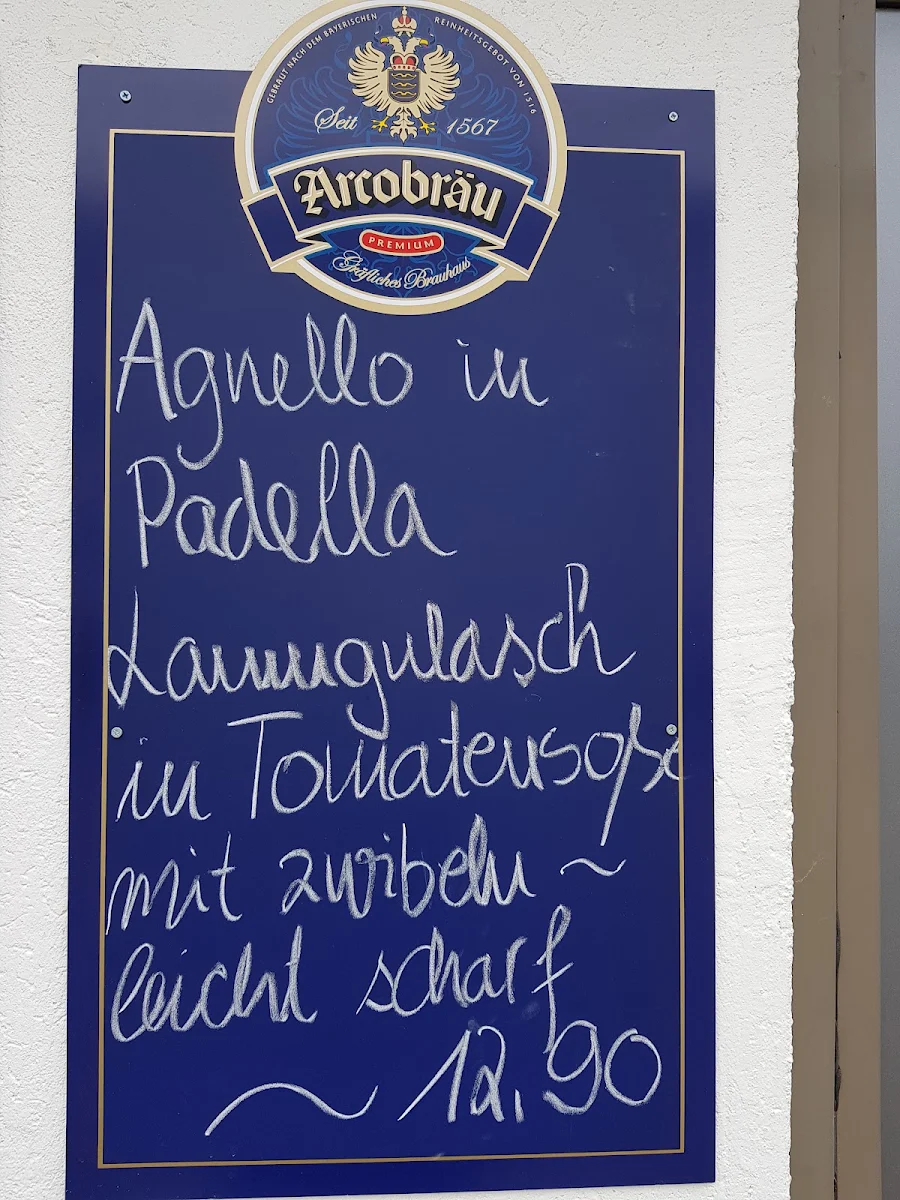 GEBRAUT NACH DEM BAYERISCHEN REINHEITSGEBOT VON 1516
Seit 1567
Arcobräu
PREMIUM
Gräfliches Brauhaus
Agnello in
Padella
Lammgulasch
in Tomatensoße
mit zwibeln ~
leicht scharf
~ 12,90